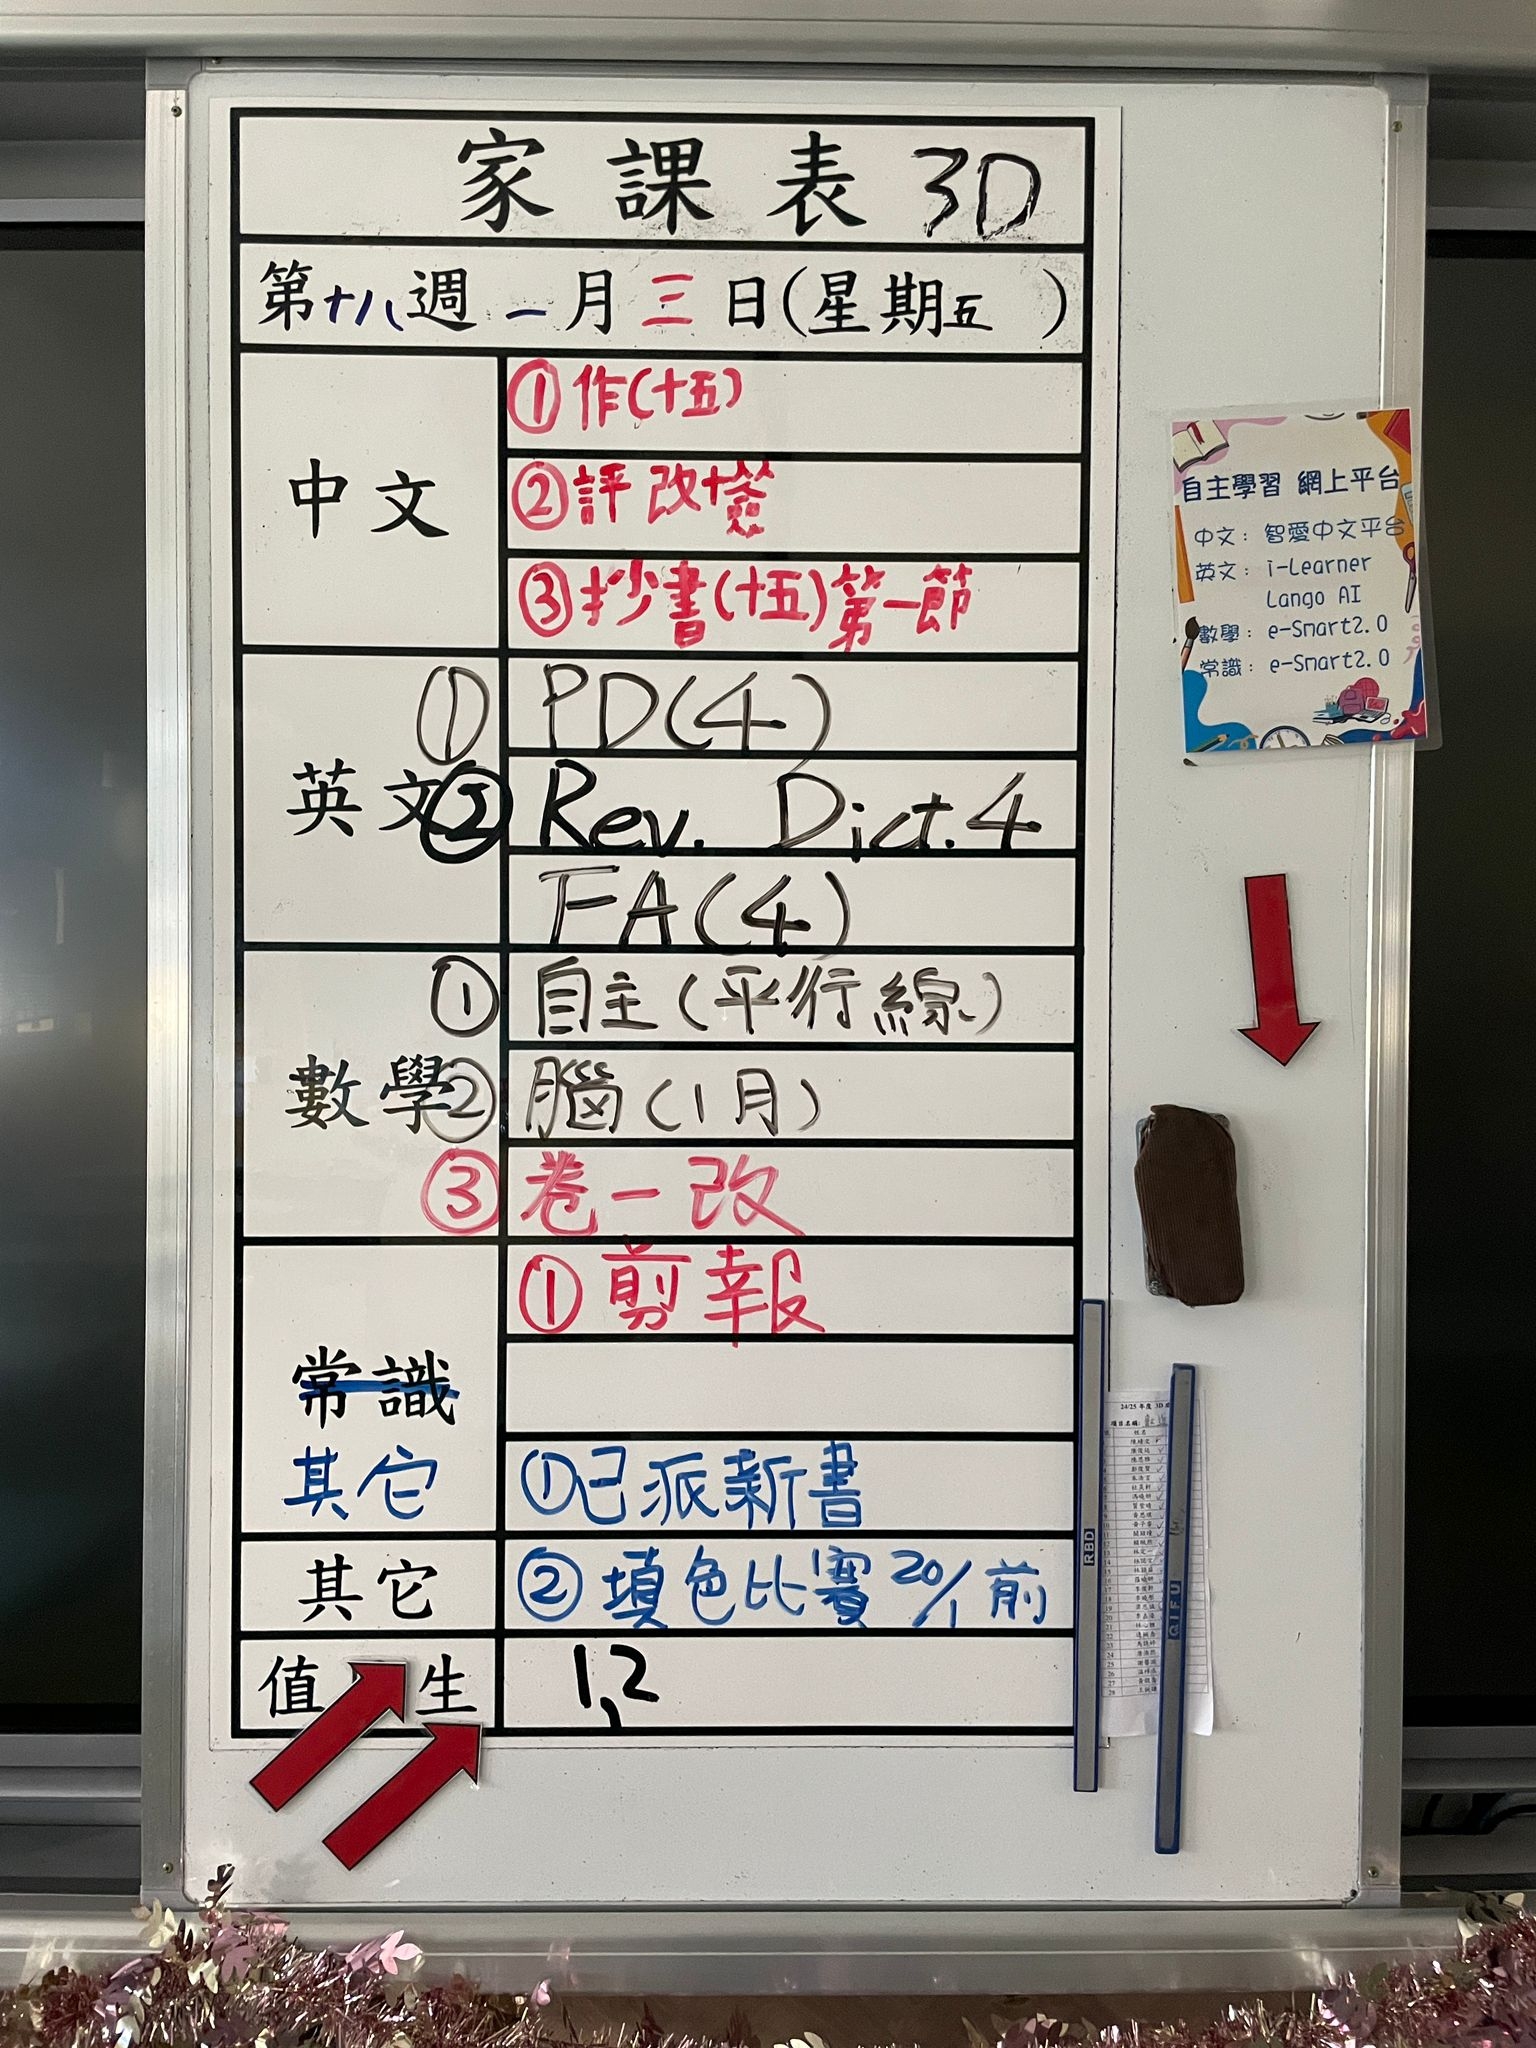 家課表 3D
第十八週 一月三日(星期五 )
中文
① 作(十五)
② 評改十
③ 抄書(十五)第一節
英文
① PD(4)
② Rev. Dict.4
FA(4)
數學
① 自主(平行線)
② 腦(1月)
③ 卷一改
常識
① 剪報
其它
①已派新書
其它
② 填色比賽 20/1前
值 生
1,2
自主學習 網上平台
中文: 智愛中文平台
英文: i-Learner
Lango AI
數學: e-Smart2.0
常識: e-Smart2.0
RBD
QIFU
24/25 年度 3D
項目名稱:
姓名